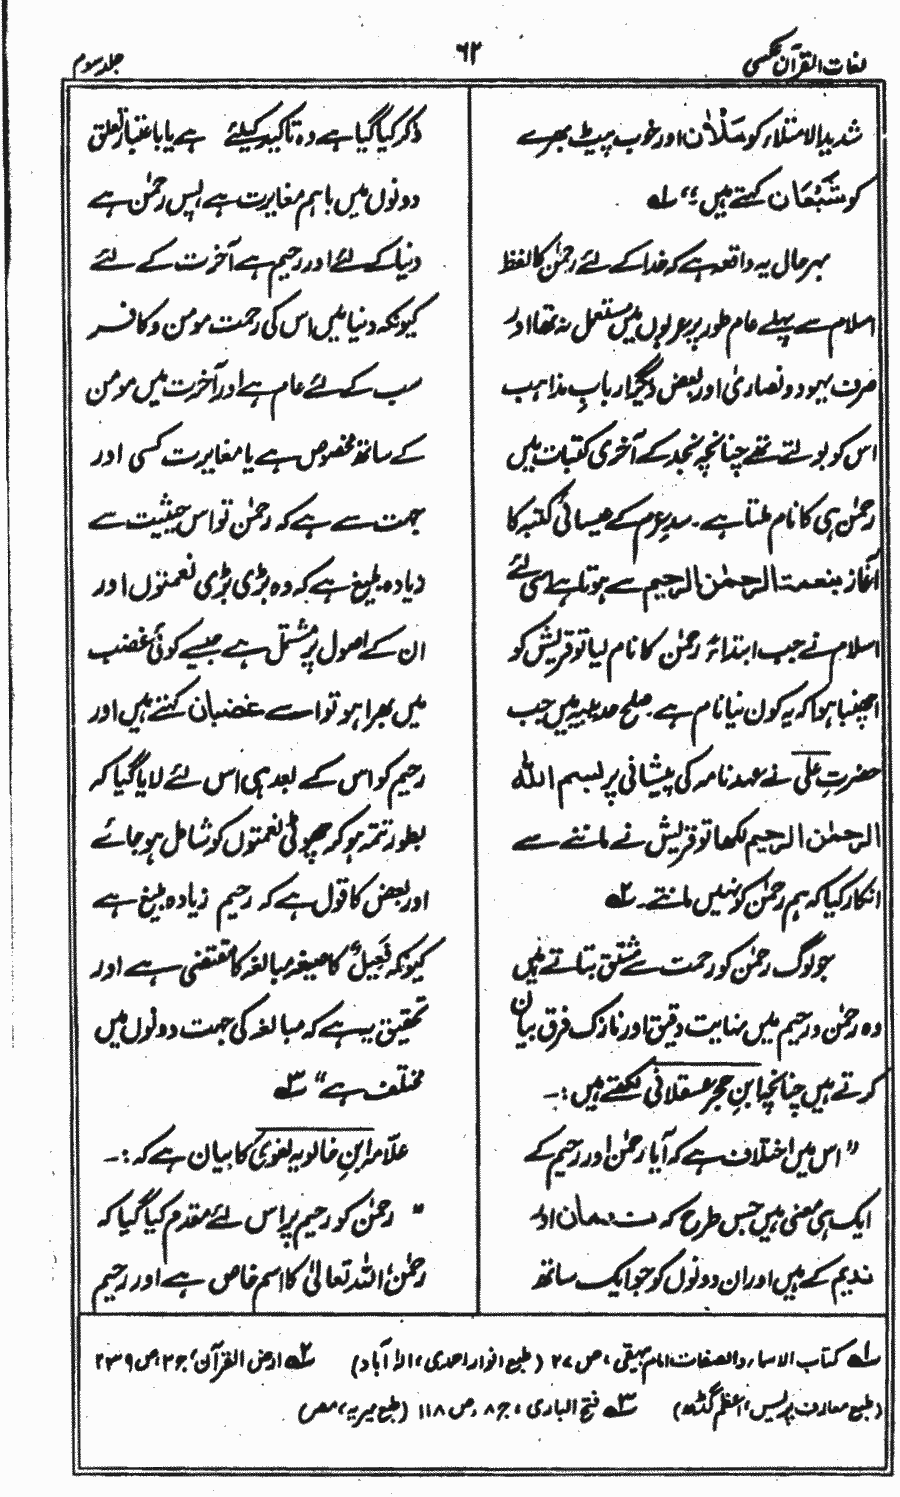 لغات القرآن عکسی
۶۲
جلد سوم
شدید الامتلاء کو مَلْآن اور خوب پیٹ بھرے
کو شَبْعَان کہتے ہیں؛“ لہ
بہر حال یہ واقعہ ہے کہ خدا کے لئے رحمٰن کا لفظ
اسلام سے پہلے عام طور پر عربوں میں مستعمل نہ تھا اور
صرف یہود و نصاریٰ اور بعض دیگر ارباب مذاہب
اس کو بولتے تھے چنانچہ نجد کے آخری کتبات میں
رحمٰن ہی کا نام ملتا ہے۔ سدِ عرم کے عیسائی کتبہ کا
آغاز بنعمۃ الرحمٰن الرحیم سے ہوتا ہے اسی لئے
اسلام نے جب ابتداءً رحمٰن کا نام لیا تو قریش کو
اچنبھا ہوا کہ یہ کون نیا نام ہے۔ صلح حدیبیہ میں جب
حضرت علی نے عہد نامہ کی پیشانی پر بسم اللہ
الرحمٰن الرحیم لکھا تو قریش نے ماننے سے
انکار کیا کہ ہم رحمٰن کو نہیں مانتے۔ ۲ہ
جو لوگ رحمٰن کو رحمت سے مشتق بتاتے ہیں
وہ رحمٰن و رحیم میں نہایت دقیق اور نازک فرق بیان
کرتے ہیں چنانچہ ابن حجر عسقلانی لکھتے ہیں :۔
” اس میں اختلاف ہے کہ آیا رحمٰن اور رحیم کے
ایک ہی معنی ہیں جس طرح کہ ندمان اور
ندیم کے ہیں اور ان دونوں کو جو ایک ساتھ
ذکر کیا گیا ہے وہ تاکید کیلئے ہے یا باعتبار تعلق
دونوں میں باہم مغایرت ہے پس رحمٰن ہے
دنیا کے لئے اور رحیم ہے آخرت کے لئے
کیونکہ دنیا میں اس کی رحمت مومن و کافر
سب کے لئے عام ہے اور آخرت میں مومن
کے ساتھ مخصوص ہے یا مغایرت کسی اور
جہت سے ہے کہ رحمٰن تو اس حیثیت سے
زیادہ بلیغ ہے کہ وہ بڑی بڑی نعمتوں اور
ان کے اصول پر مشتمل ہے جیسے کوئی غضب
میں بھرا ہو تو اسے غضبان کہتے ہیں اور
رحیم کو اس کے بعد ہی اس لئے لایا گیا کہ
بطور تتمہ ہو کر چھوٹی نعمتوں کو شامل ہو جائے
اور بعض کا قول ہے کہ رحیم زیادہ بلیغ ہے
کیونکہ فَعِیلٌ کا صیغہ مبالغہ کا مقتضی ہے اور
تحقیق یہ ہے کہ مبالغہ کی جہت دونوں میں
مختلف ہے“ ۳ہ
علامہ ابن خالویہ لغوی کا بیان ہے کہ :۔
” رحمٰن کو رحیم پر اس لئے مقدم کیا گیا کہ
رحمٰن اللہ تعالیٰ کا اسم خاص ہے اور رحیم
لہ کتاب الاسماء والصفات امام بیہقی، ص ۲۷ (طبع انوار احمدی، الہ آباد) ۲ہ ارض القرآن، ج ۲، ص ۲۳۹
(طبع معارف پریس، اعظم گڈھ) ۳ہ فتح الباری، ج ۸، ص ۱۱۸ (طبع میریہ، مصر)